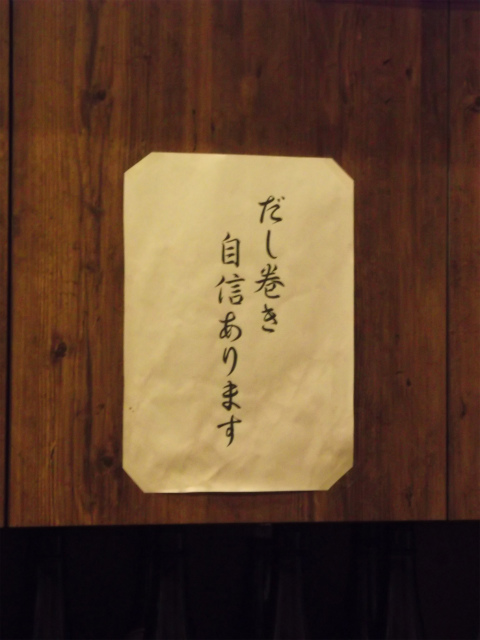 だし巻き
自信あります